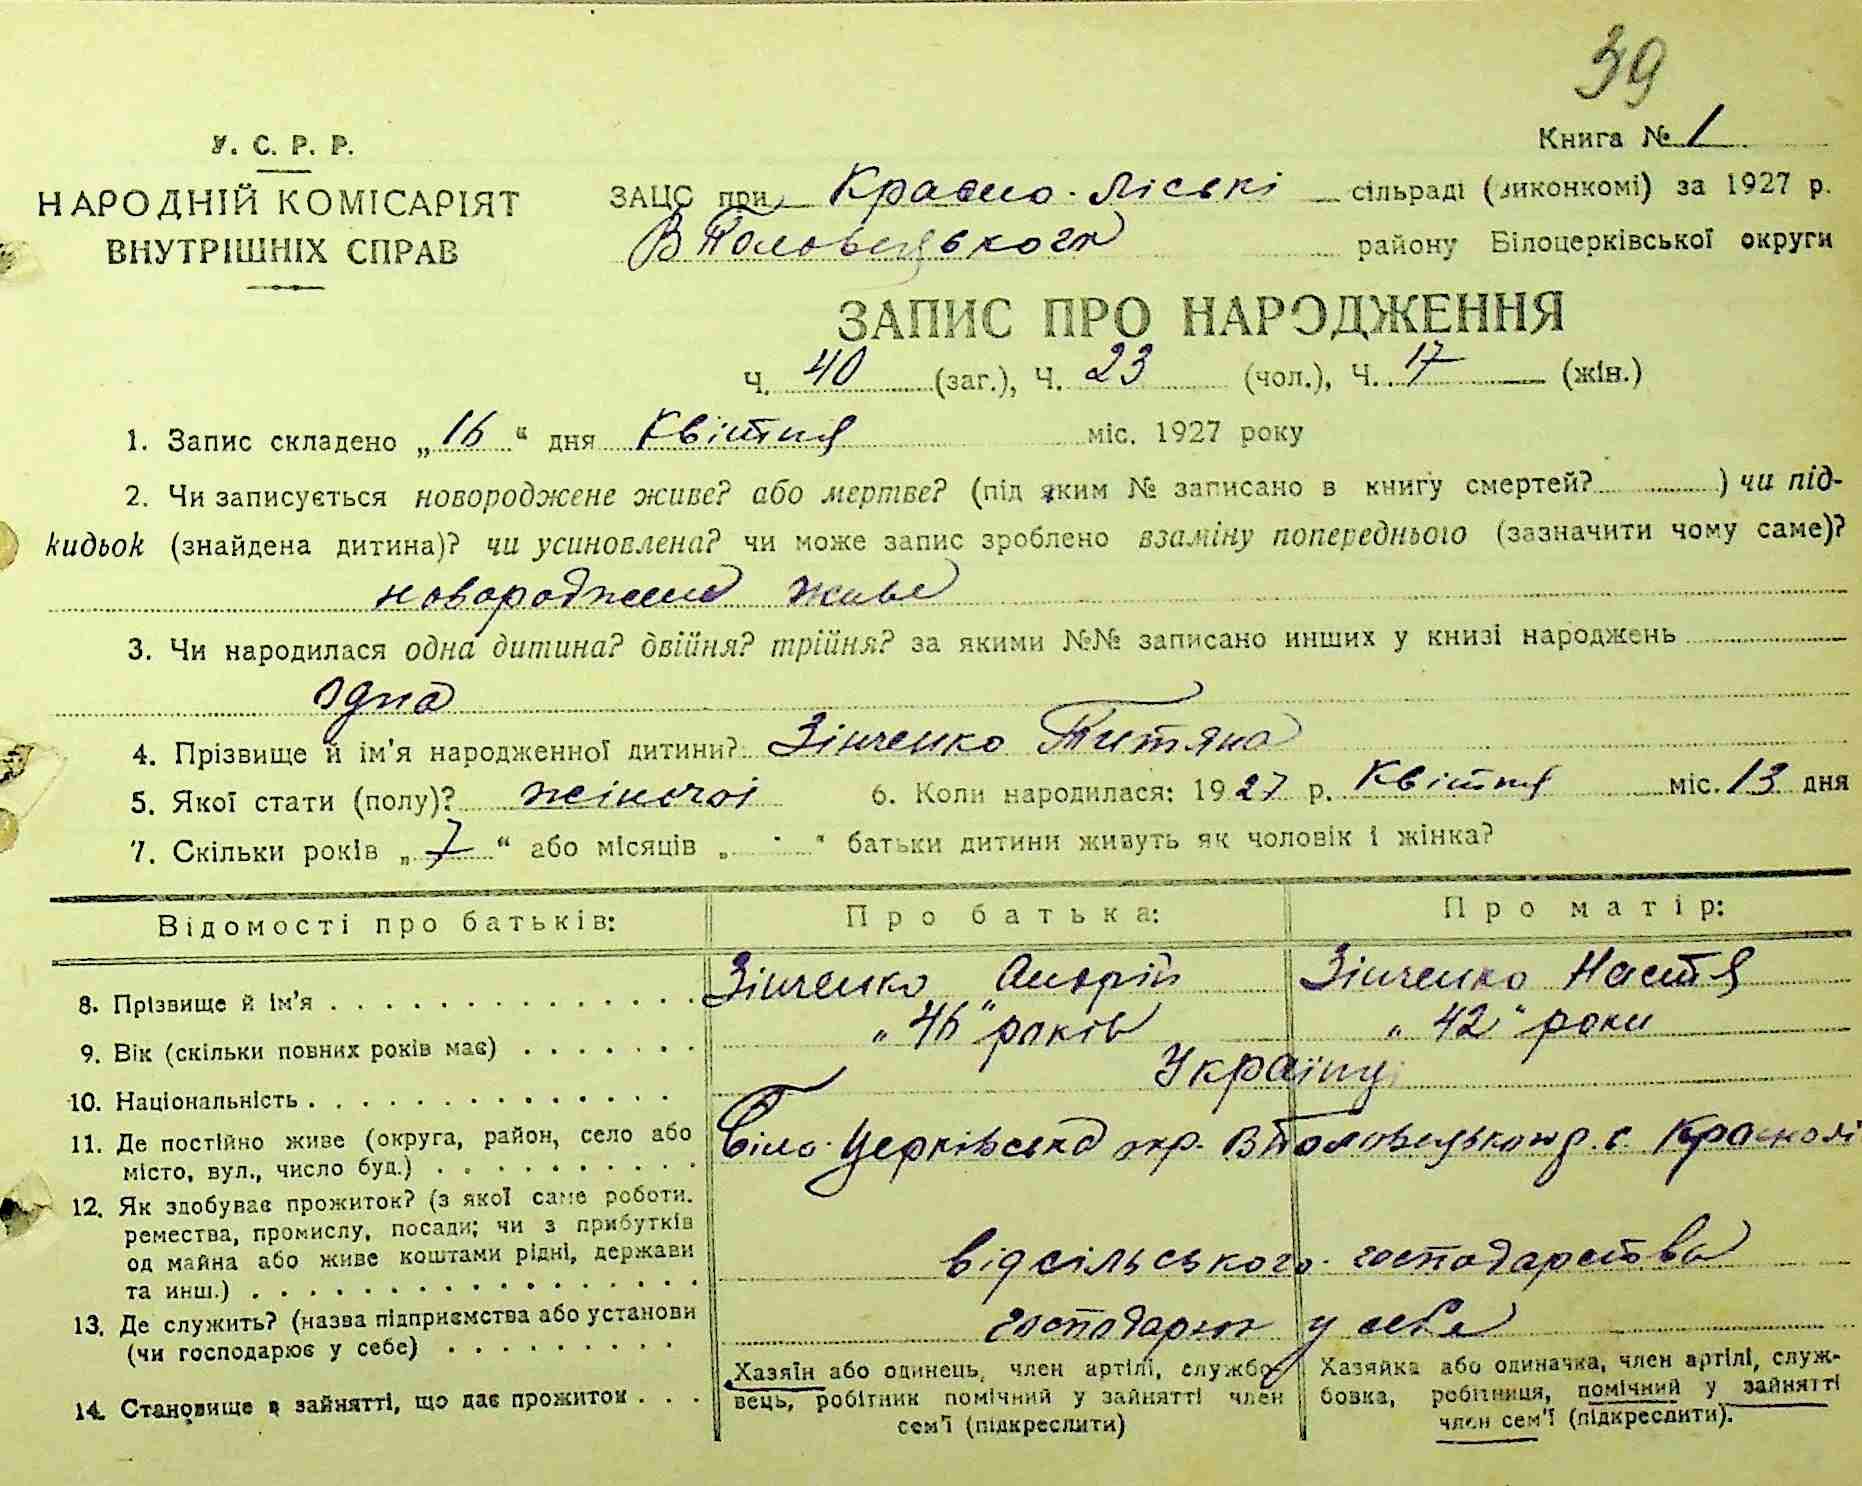 39
У. С. Р. Р.
Книга № 1
НАРОДНІЙ КОМІСАРІЯТ
ВНУТРІШНІХ СПРАВ
ЗАЦС при Красно-ліські сільраді (виконкомі) за 1927 р.
В Половецького району Білоцерківської округи
ЗАПИС ПРО НАРОДЖЕННЯ
Ч. 40 (заг.), Ч. 23 (чол.), Ч. 17 (жін.)
1. Запис складено „16“ дня Квітня міс. 1927 року
2. Чи записується новороджене живе? або мертве? (під яким № записано в книгу смертей? ) чи під-
кидьок (знайдена дитина)? чи усиновлена? чи може запис зроблено взаміну попереднього (зазначити чому саме)?
новороджене живе
3. Чи народилася одна дитина? двійня? трійня? за якими №№ записано инших у книзі народжень
одна
4. Прізвище й ім'я народженної дитини? Зінченко Титяна
5. Якої стати (полу)? жіночої 6. Коли народилася: 1927 р. Квітня міс. 13 дня
7. Скільки років „7“ або місяців „ “ батьки дитини живуть як чоловік і жінка?
Відомості про батьків: Про батька: Про матір:
8. Прізвище й ім'я Зінченко Андрій Зінченко Настя
9. Вік (скільки повних років має) „46“ років „42“ роки
10. Національність Українці
11. Де постійно живе (округа, район, село або
місто, вул., число буд.) Біло-Церківська окр. В Половецького р. с. Красnолі
12. Як здобуває прожиток? (з якої саме роботи.
ремества, промислу, посади; чи з прибутків
од майна або живе коштами рідні, держави
та инш.) від сільського господарства
13. Де служить? (назва підприємства або установи
(чи господарює у себе) господарют у себе
14. Становище в зайнятті, що дає прожиток
Хазяїн або одинець, член артілі, службо-
вець, робітник помічний у зайнятті член
сем'ї (підкреслити)
Хазяйка або одиначка, член артілі, служ-
бовка, робітниця, помічний у зайнятті
член сем'ї (підкреслити).